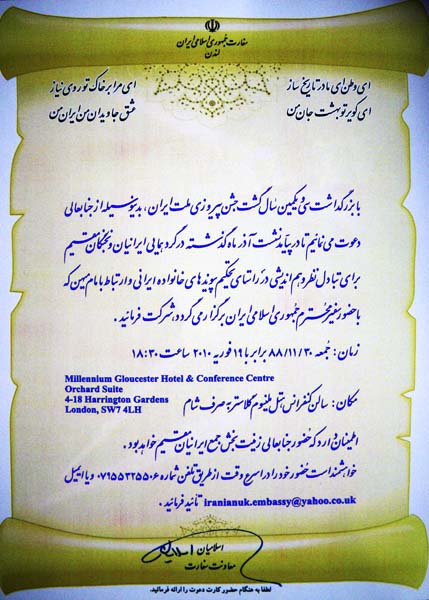 سفارت جمهوری اسلامی ایران
لندن
ای وطن ای مادر تاریخ ساز
ای مرا بر خاک تو روی نیاز
ای کویر تو بهشت جان من
عشق جاویدان من ایران من
با بزرگداشت سی و یکمین سال گشت جشن پیروزی ملت ایران، بدینوسیله از جنابعالی
دعوت می نمائیم تا در پیامد نشست آذر ماه گذشته در گردهمایی ایرانیان و نخبگان مقیم
برای تبادل نظر و هم اندیشی در راستای تحکیم پیوندهای خانواده ایرانی و ارتباط با مام میهن که
با حضور سفیر محترم جمهوری اسلامی ایران برگزار می گردد، شرکت فرمائید.
زمان: جمعه ۸۸/۱۱/۳۰ برابر با ۱۹ فوریه ۲۰۱۰ ساعت ۱۸:۳۰
Millennium Gloucester Hotel & Conference Centre
Orchard Suite
4-18 Harrington Gardens
London, SW7 4LH
مکان: سالن کنفرانس هتل ملینیوم گلاستر = صرف شام
اطمینان دارد که حضور جنابعالی زینت بخش جمع ایرانیان مقیم خواهد بود.
خواهشمند است حضور خود را در اسرع وقت از طریق تلفن شماره ۰۷۹۵۵۳۲۵۵۰۶ و یا ایمیل
iranianuk.embassy@yahoo.co.uk تائید فرمائید.
اسلامیان
معاونت سفارت
لطفا به هنگام حضور کارت دعوت را ارائه فرمائید.